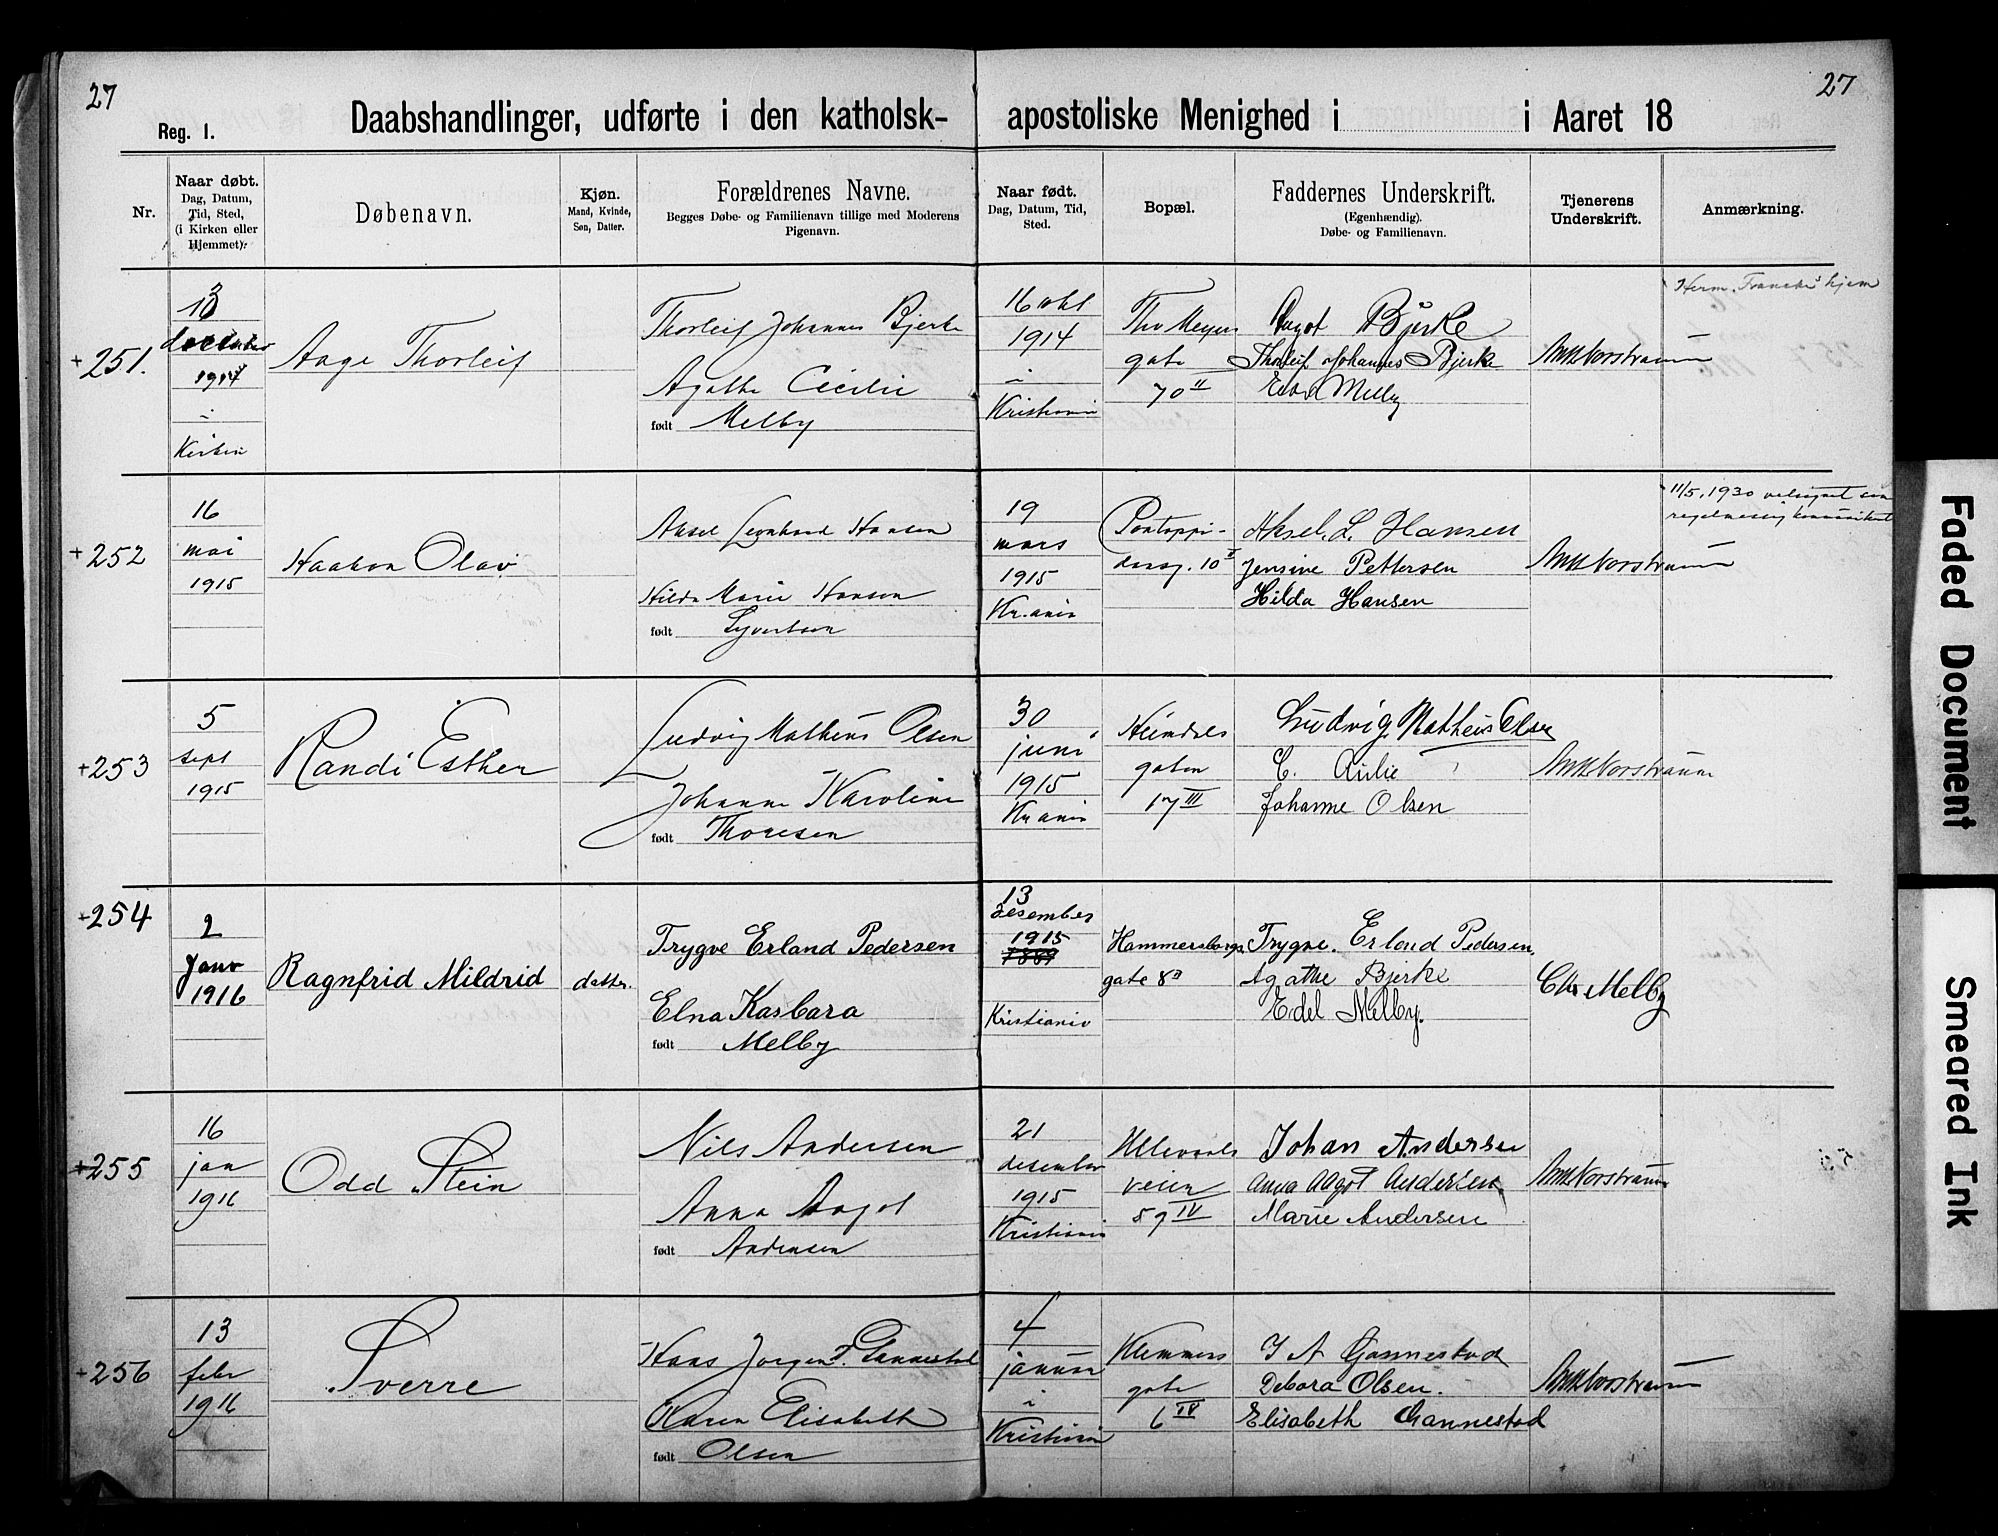 27
27
Reg. 1.
Daabshandlinger, udførte i den katholsk-apostoliske Menighed i i Aaret 18
Nr.
Naar døbt.
Dag, Datum,
Tid, Sted,
(i Kirken eller
Hjemmet).
Døbenavn.
Kjøn.
Mand, Kvinde,
Søn, Datter.
Forældrenes Navne.
Begges Døbe- og Familienavn tillige med Moderens
Pigenavn.
Naar født.
Dag, Datum, Tid,
Sted.
Bopæl.
Faddernes Underskrift.
(Egenhændig).
Døbe- og Familienavn.
Tjenerens
Underskrift.
Anmærkning.
+251.
13
december
1914
i
Kirken
Aage Thorleif
Thorleif Johannes Bjerke
Agathe Cecilie
født Melby
16 okt
1914
i
Kristiania
Thv Meyers
gate
70 II
Aagot Bjerke
Thorleif Johannes Bjerke
Edel Melby
Herm. hjem
+252
16
mai
1915
Haakon Olav
Aksel Leonhard Hansen
Hilda Marie Hansen
født Syvertsen
19
mars
1915
Kr.ania
Pontoppi-
dansg. 10 I
Aksel. L. Hansen
Jensine Pettersen
Hilda Hansen
11/5, 1930 velsignet som
regelmessig kommunikant
+253
5
sept
1915
Randi Esther
Ludvig Matheus Olsen
Johanne Karoline
født Thoresen
30
juni
1915
Kr.ania
Heimdals
gaten
17 III
Ludvig Matheus Olsen
E.
Johanne Olsen
+254
2
Janr
1916
Ragnfrid Mildrid
datter.
Trygve Erland Pedersen
Elna Kasbara
født Melby
13
Desember
1915
Kristiania
Hammersborgs
gate 8 II
Trygve. Erland Pedersen.
Agathe Bjerke
Edel Melby.
Chr Melby
+255
16
jan
1916
Odd Stein
Nils Andersen
Anna Aagot
født Andersen
21
desember
1915
Kristiania
Ullevaals
veien
59 IV
Johan Andersen
Anna Aagot Andersen
Marie Andersen
+256
13
febr
1916
Sverre
Hans Jørgen F. Gannestad
Karen Elisabeth
født Olsen
4
januar
i
Kristiania
Klemmers
gate
6 IV
J A Gannestad
Debora Olsen.
Elisabeth Gannestad
Faded Document
Smeared Ink